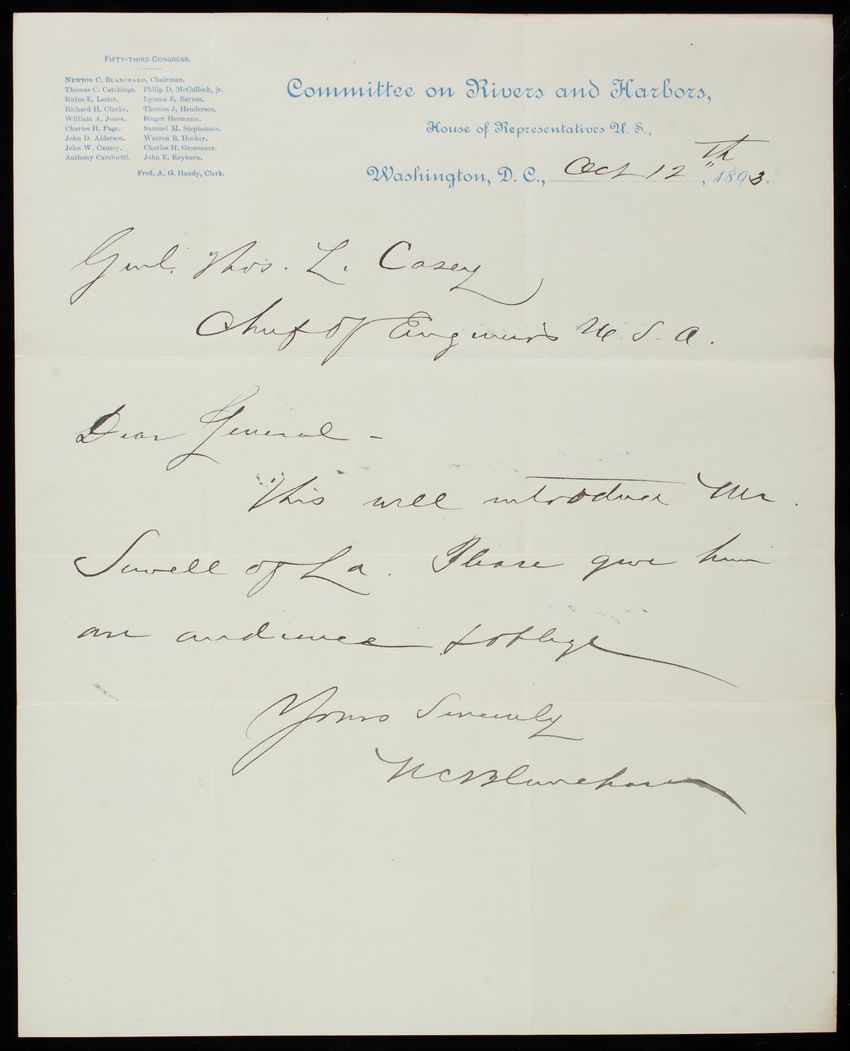 FIFTY-THIRD CONGRESS.
NEWTON C. BLANCHARD, Chairman.
Thomas C. Catchings. Philip D. McCulloch, jr.
Rufus E. Lester. Lyman E. Barnes.
Richard H. Clarke. Thomas J. Henderson.
William A. Jones. Binger Hermann.
Charles H. Page. Samuel M. Stephenson.
John D. Alderson. Warren B. Hooker.
John W. Causey. Charles H. Grosvenor.
Anthony Caminetti. John E. Reyburn.
Fred. A. G. Handy, Clerk.
Committee on Rivers and Harbors,
House of Representatives U. S.,
Washington, D. C., Oct 12th, 1893.
Genl. Thos. L. Casey
Chief of Engineers U. S. A.
Dear General -
This will introduce Mr.
Sewell of La. Please give him
an audience & oblige
Yours Sincerely
N C Blanchard